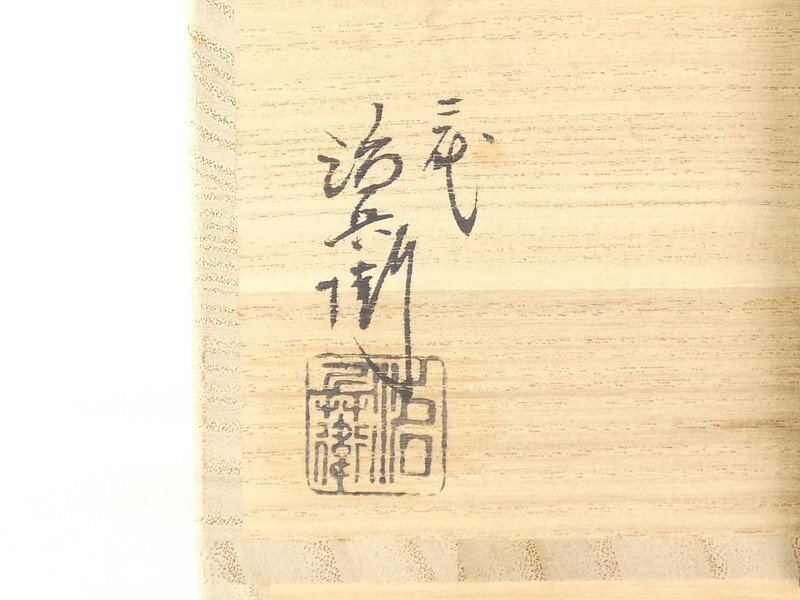 二代
治兵衛
治兵衛